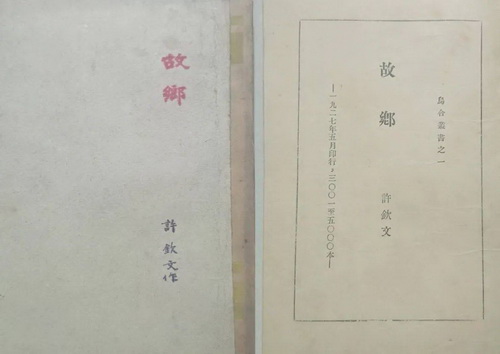 故鄉
許欽文作
烏合叢書之一
故鄉
許欽文
—一九二七年五月印行，三〇〇一至五〇〇〇本—